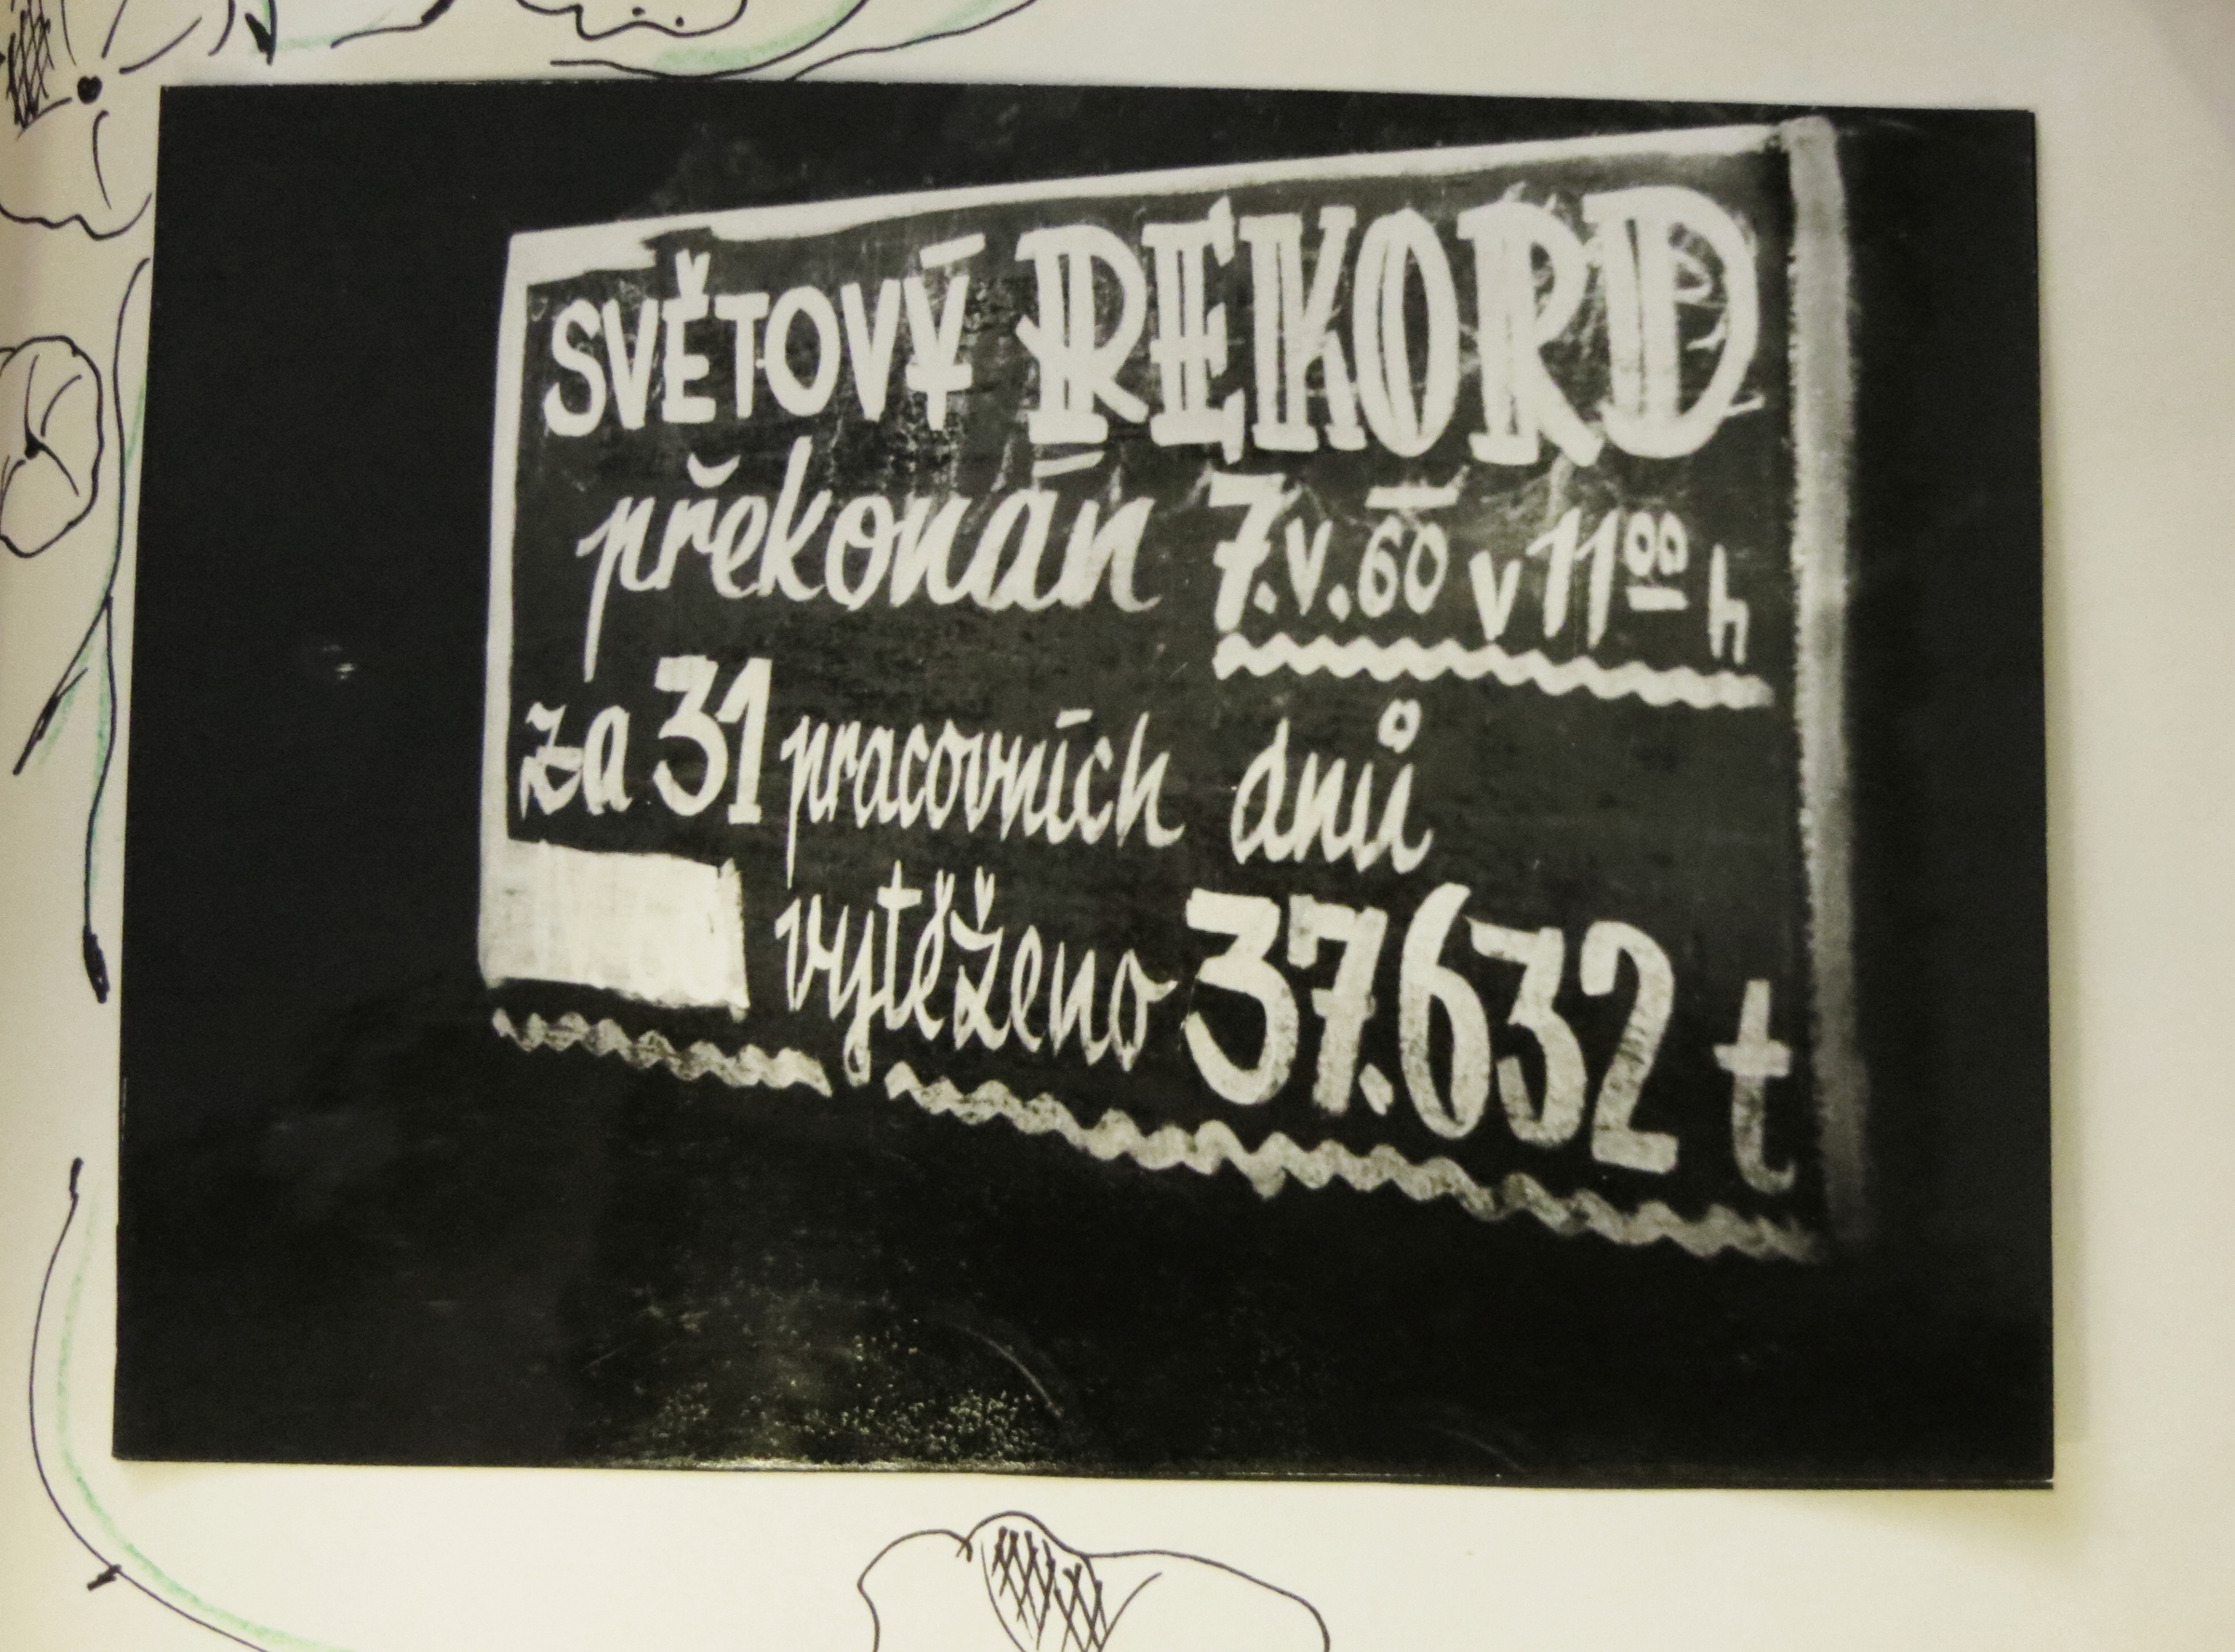 SVĚTOVÝ REKORD
překonán 7.V.60 v 11⁰⁰ h
za 31 pracovních dnů
vytěženo 37.632 t